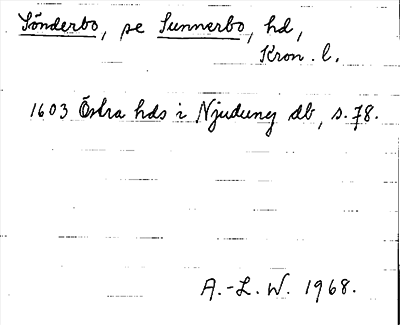 Sönderbo, se Sunnerbo, hd,
Kron. l.
1603 Östra hds i Njudung db, s. 78.
A.-L. W. 1968.